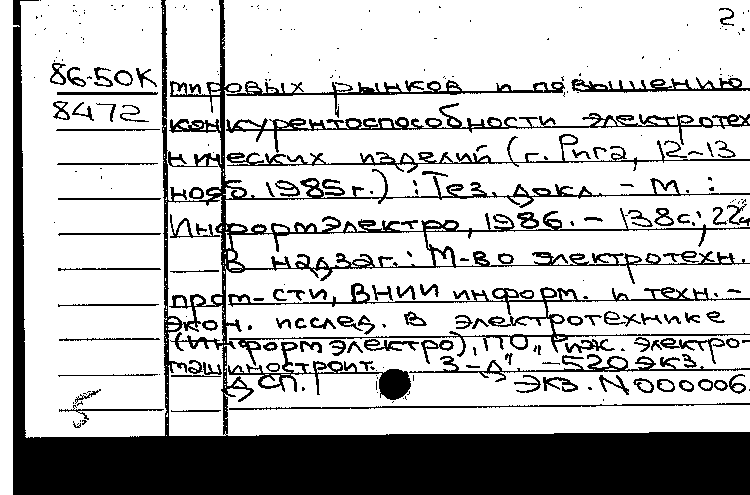 2.
86-50К мировых рынков и повышению
8472 конкурентоспособности электротех
нических изделий (г. Рига, 12-13
нояб. 1985г.) : Тез. докл. - М. :
Информэлектро, 1986. - 138с.; 22
В надзаг.: М-во электротехн.
пром-сти, ВНИИ информ. и техн.-
экон. исслед. в электротехнике
(Информэлектро), ПО „Риж. электро-
машиностроит. З-д". - 520 экз.
ДСП. Экз. N000006
5